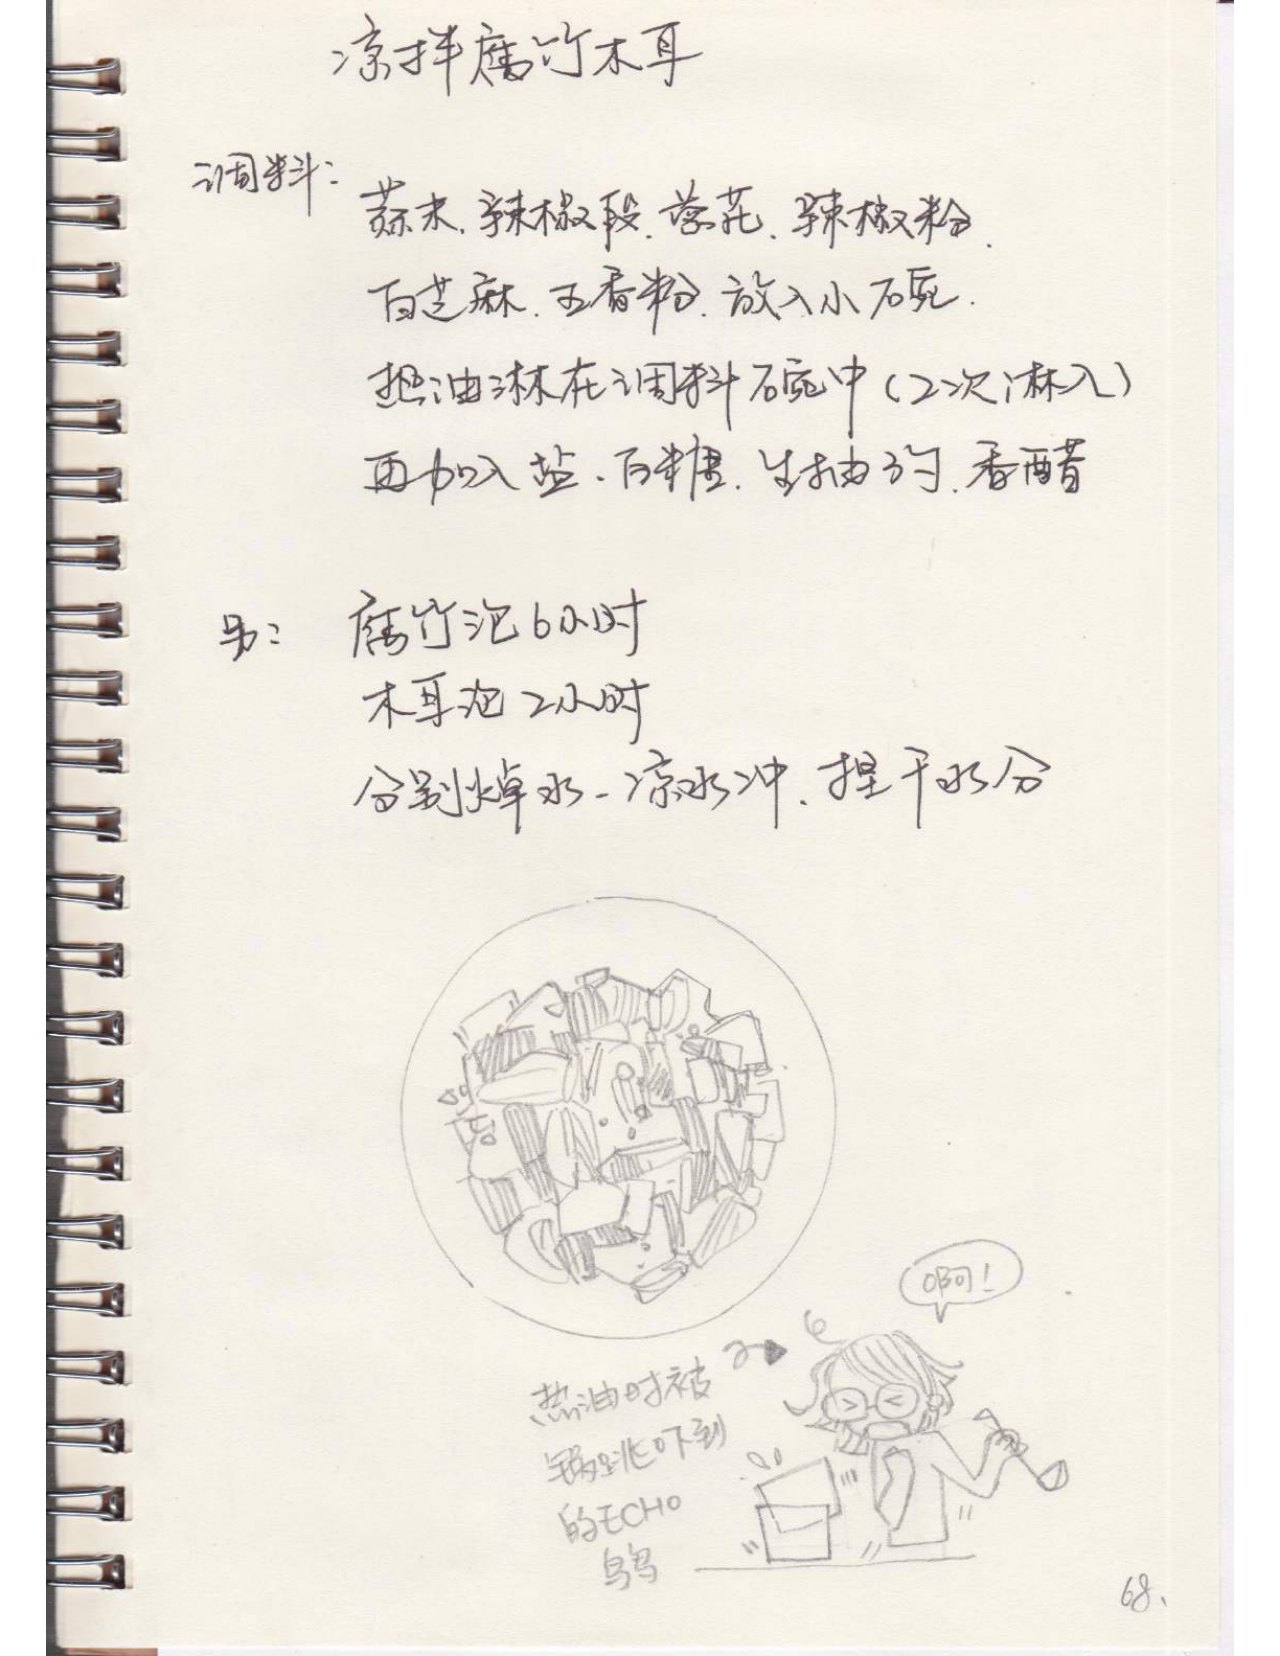 凉拌腐竹木耳
调料:
蒜末.辣椒段.葱花.辣椒粉.
白芝麻.五香粉.放入小碗.
热油淋在调料碗中(2次淋入)
再加入盐.白糖.生抽3勺.香醋
另: 腐竹泡6小时
木耳泡2小时
分别焯水-凉水冲.捏干水分
啊!
热油时被
锅跳吓到
的ECHO
鸟鸟
68.